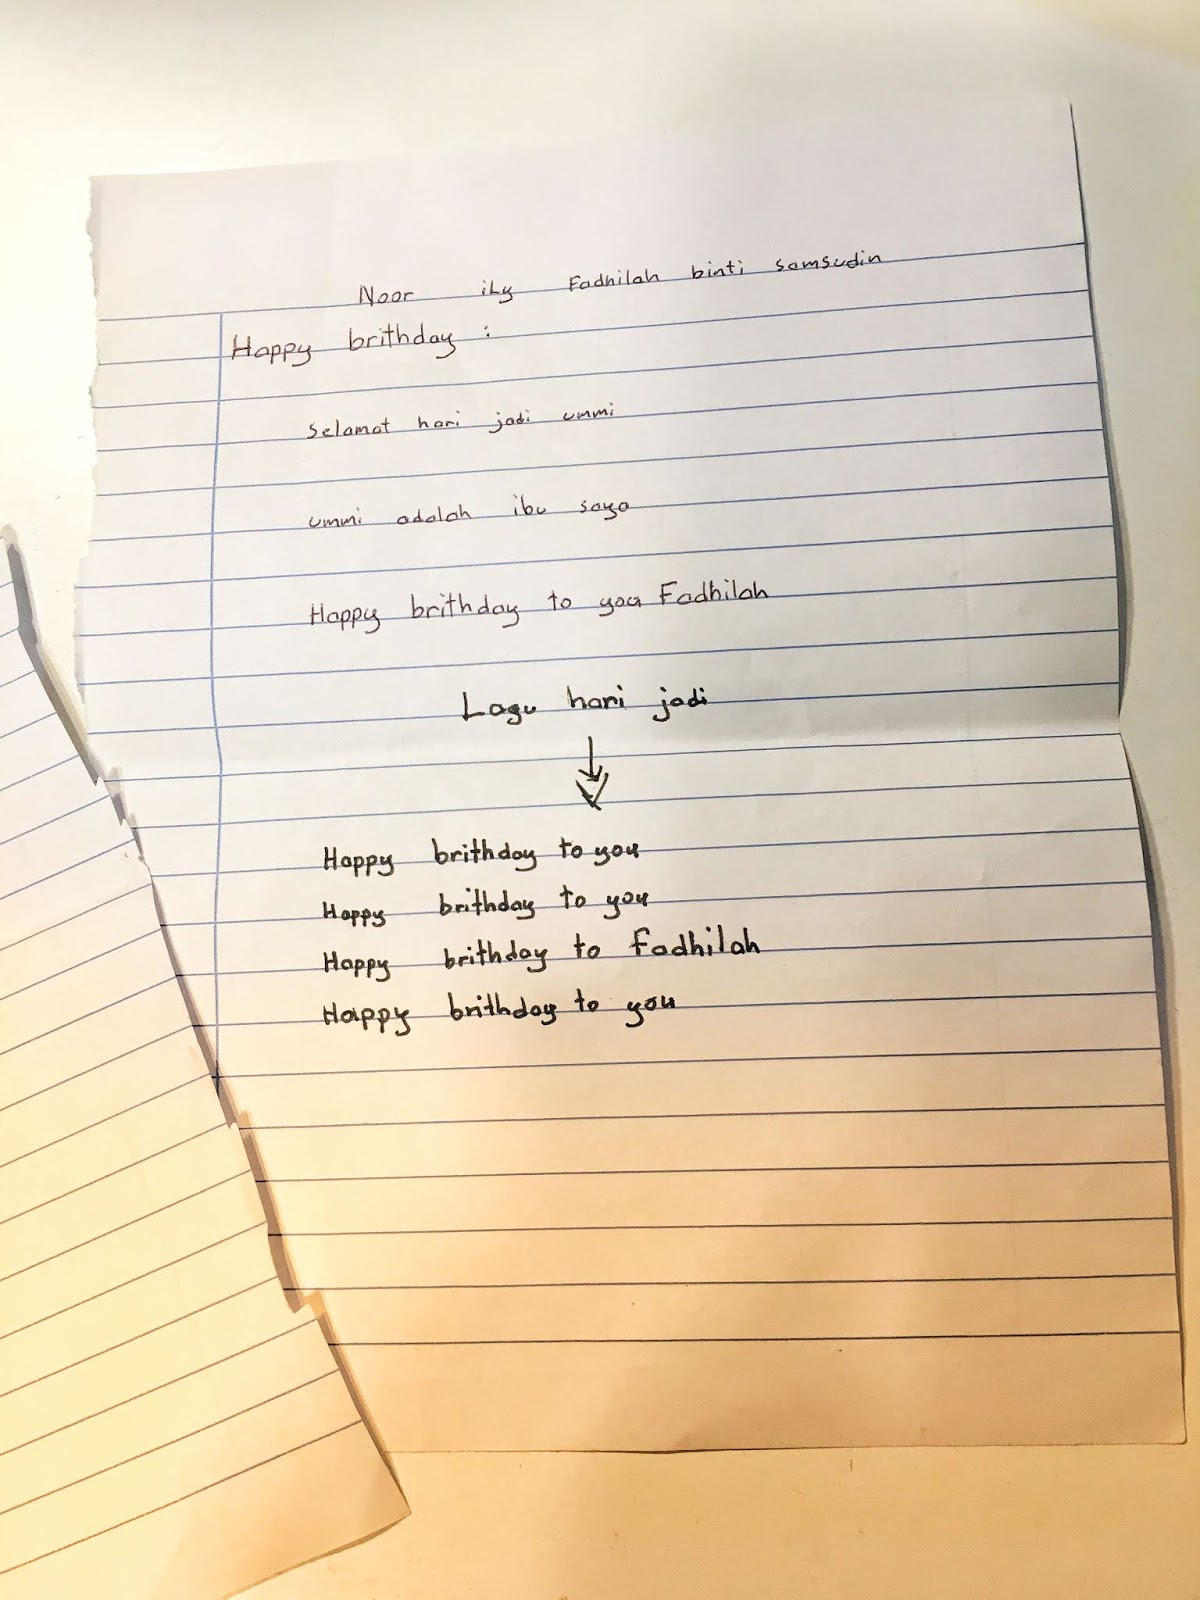 Noor ily Fadhilah binti samsudin
Happy brithday :
Selamat hari jadi ummi
ummi adalah ibu saya
Happy brithday to you Fadhilah
Lagu hari jadi
Happy brithday to you
Happy brithday to you
Happy brithday to Fadhilah
Happy brithday to you